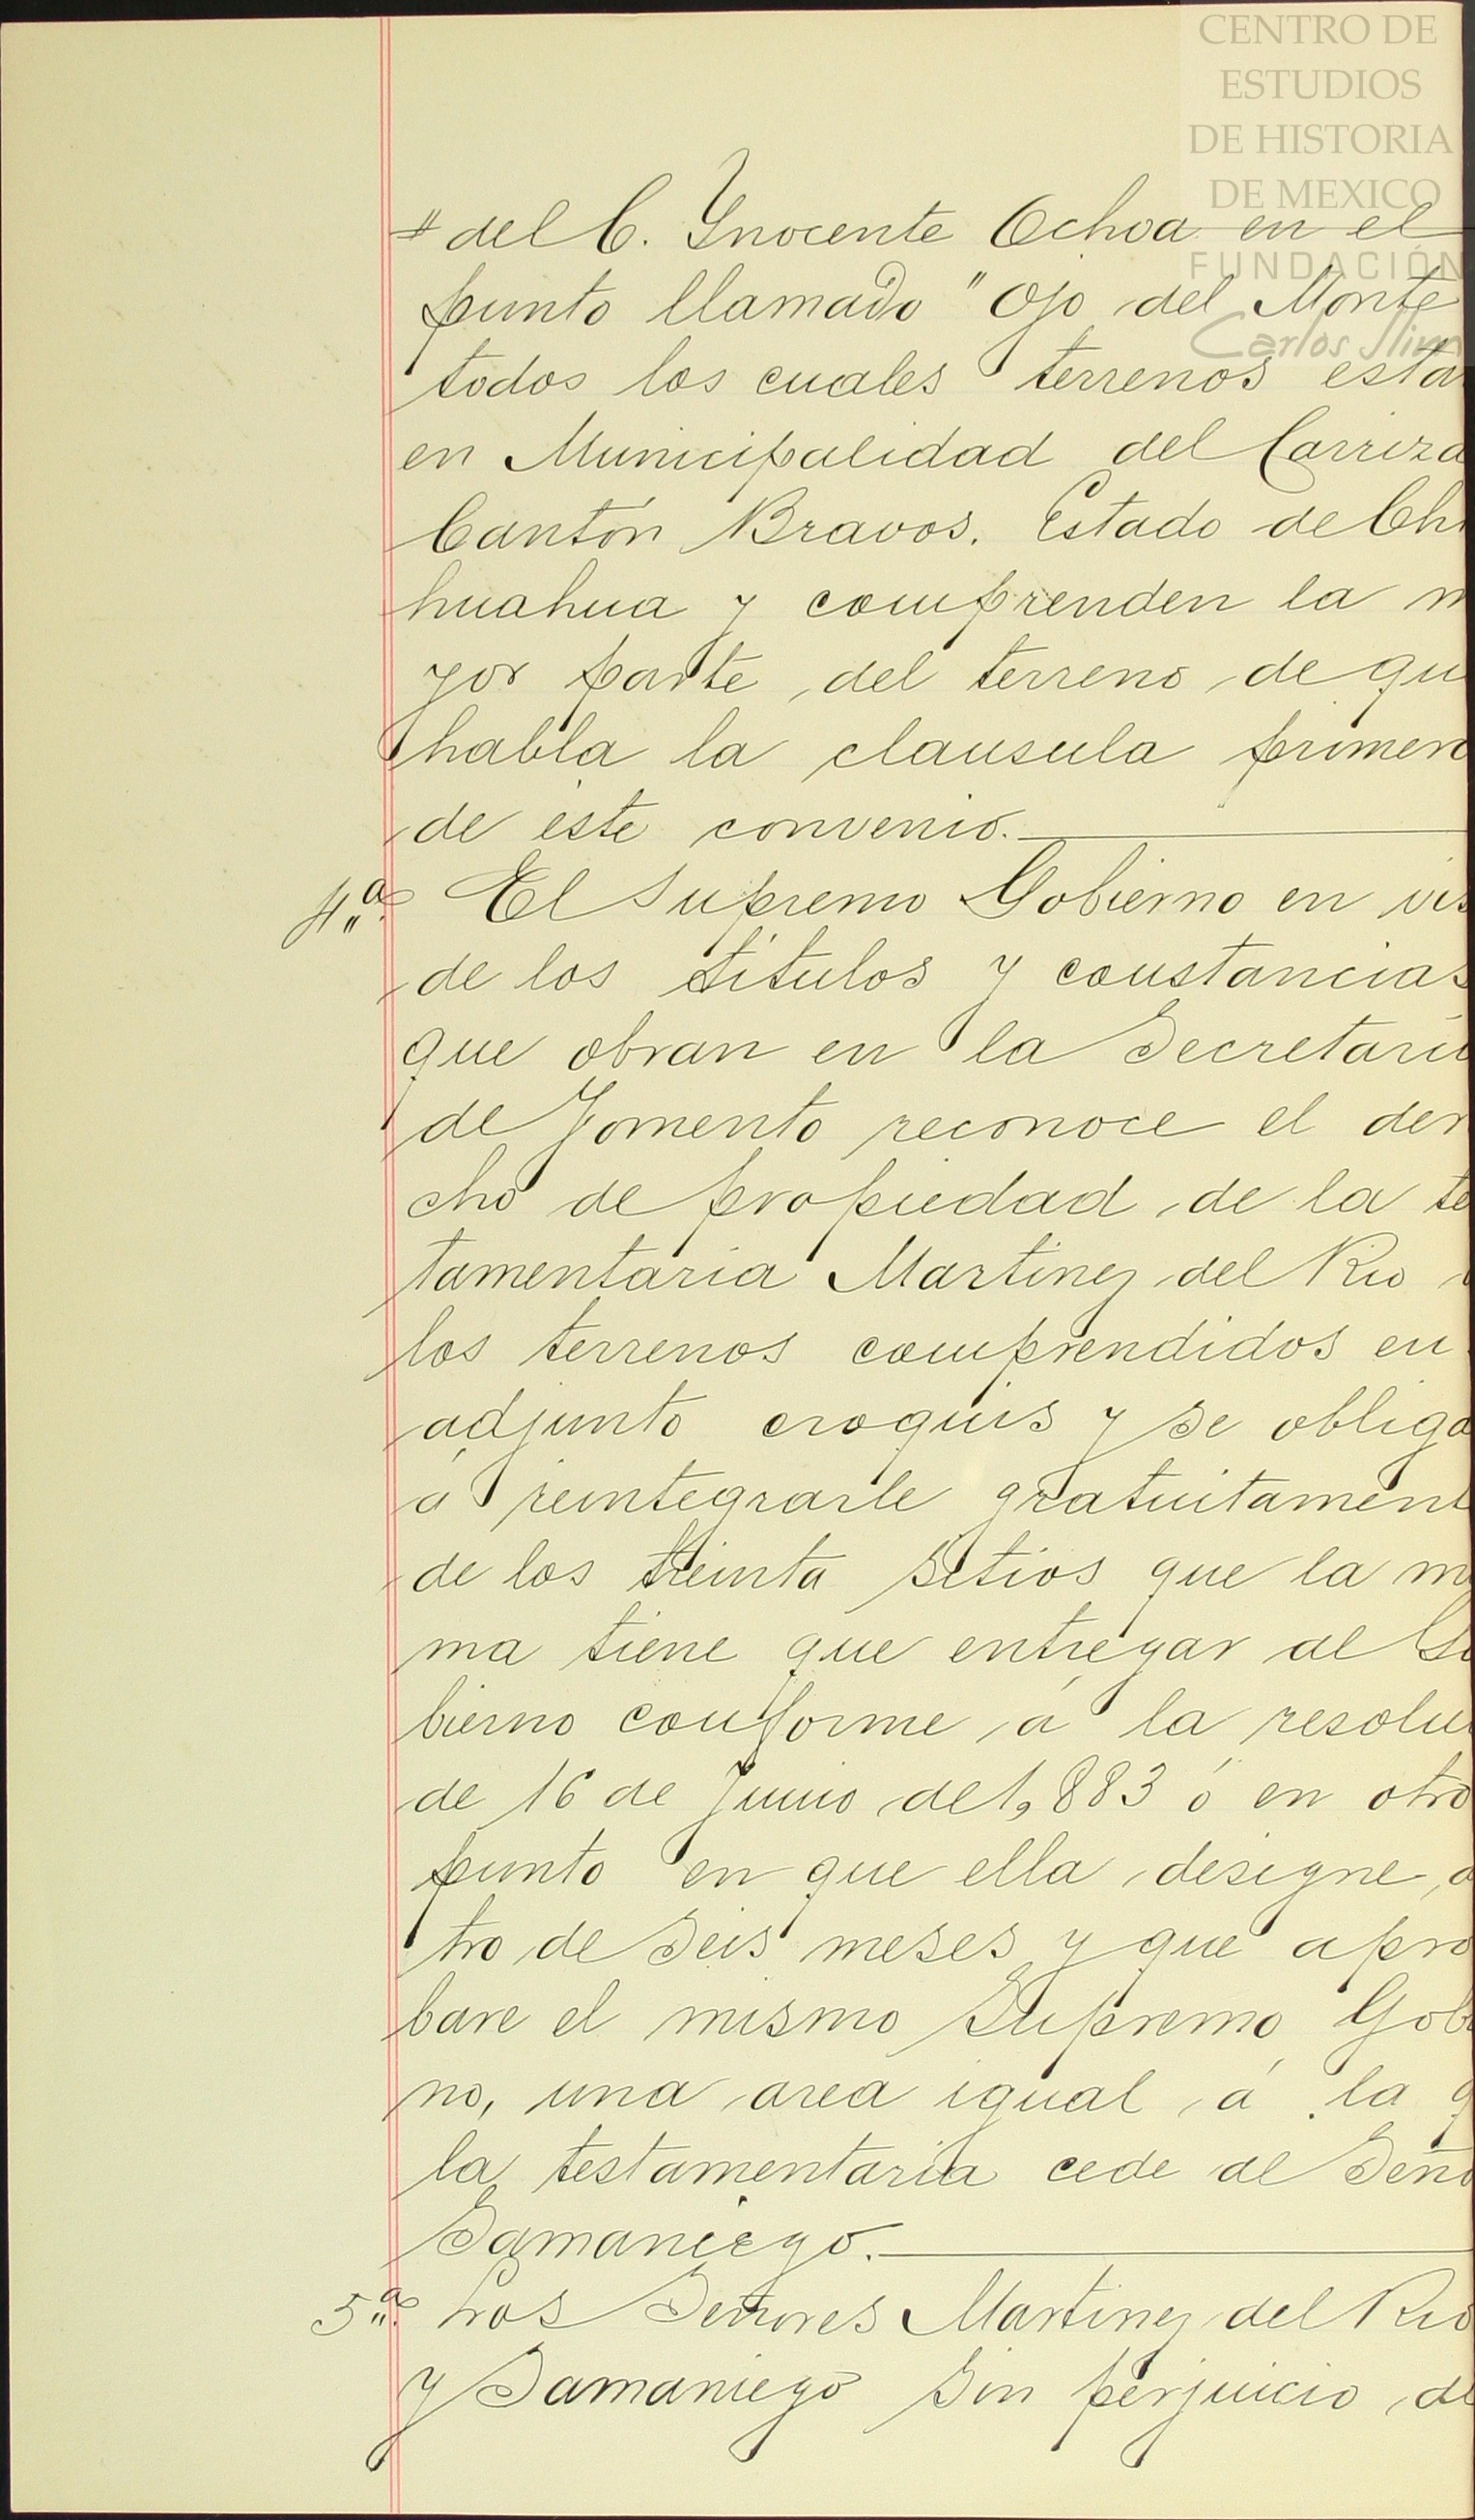 CENTRO DE
ESTUDIOS
DE HISTORIA
DE MEXICO
FUNDACIÓN
Carlos Slim
# del C. Ynocente Ochoa en el
punto llamado "Ojo del Monte
todos los cuales terrenos esta
en Municipalidad del Carriza
Cantón Bravos. Estado de Chi
huahua y comprenden la m
yor parte del terreno de qu
habla la clausula primera
de este convenio.
4.ª El Supremo Gobierno en vis
de los titulos y constancias
que obran en la Secretaria
de Fomento reconoce el der
cho de propiedad de la te
tamentaria Martinez del Rio
los terrenos comprendidos en
adjunto croquis y se obliga
á reintegrarle gratuitament
de los treinta sitios que la m
ma tiene que entregar al Go
bierno conforme á la resolu
de 16 de Junio de 1,883 ó en otro
punto en que ella designe,
tro de seis meses y que apro
bare el mismo Supremo Gobi
no, una area igual á la q
la testamentaria cede al Seño
Samaniego.
5.ª Los Señores Martinez del Rio
y Samaniego sin perjuicio de